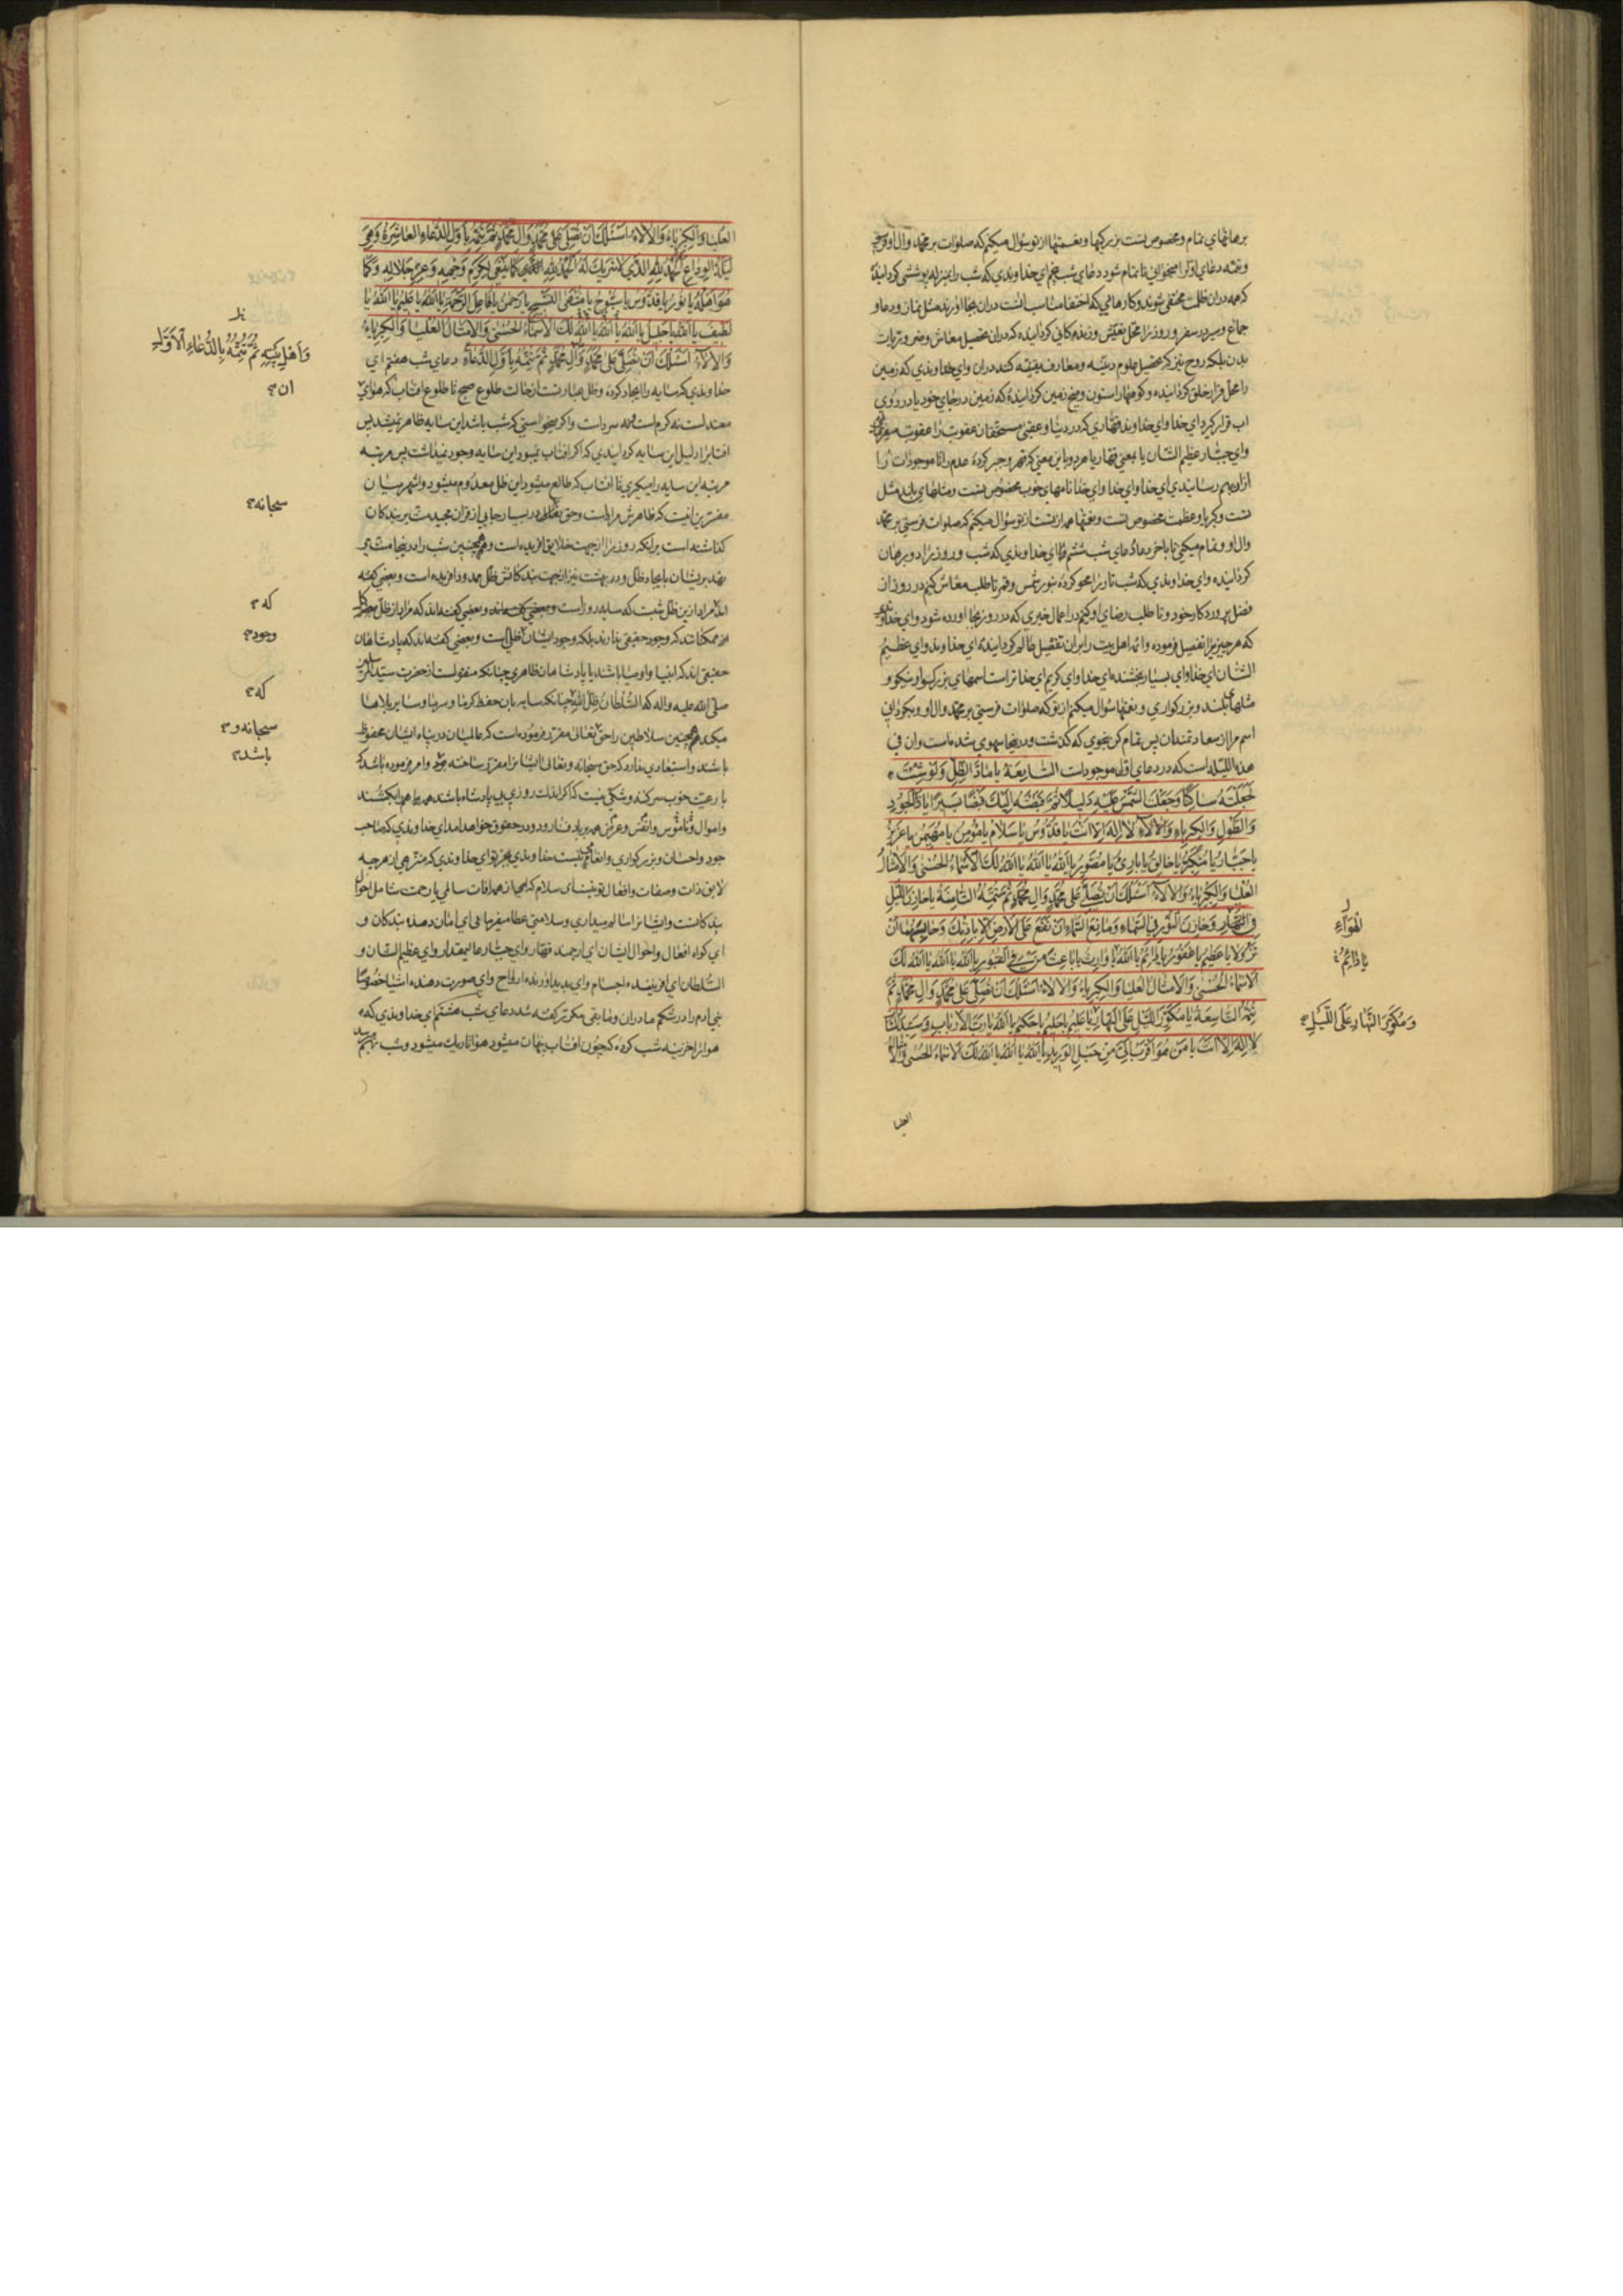 برهانهاي تمام و مخصوص تست بزرگيها و نعمتها از تو سؤال ميكنم كه صلوات بر محمد وال او فرستي
و تتمه دعاي اول را ميخواني تا تمام شود دعاي شب پنجم اي خداوندي كه شب را بمنزله پوششي كردانيدهٔ
كه همه دران ظلمت مختفي شوند و كارهايي كه اختفا مناسب انست دران بجا اورند مثل نماز و دعا و
جماع و سير در سفر و روز را محل تعيش و زندهكاني كردانيده كه دران تحصيل معاش و ضروريات
بدن بلكه روح نيز كه تحصيل علوم دينيه و معارف يقينيه كنند دران واي خداوندي كه زمين
را محل قرار خلق كردانيده و كوهها را ستون و ميخ زمين كردانيدهٔ كه زمين در جاي خود يا در روي
اب قرار كيرد اي خدا واي خداوند قهاري كه در دنيا و عقبي مستحقان عقوبت را عقوبت ميفرمائي
واي جبار عظيم الشان يا بمعني قهار يا مردوبا اين معني كه قهر و جبر كردهٔ عدم را تا موجودات را
ازاو بهم رسانيدي اي خدا واي خدا واي خدا نامهاي خوب مخصوص تست و مثلهاي بلند مثل
تست و كبريا و عظمت مخصوص تست و نعمتها همه از تست از تو سؤال ميكنم كه صلوات فرستي بر محمد
وال او و تمام ميكني تا باخر دعا دعاي شب ششم اي خداوندي كه شب و روز را دو برهان
كردانيده واي خداوندي كه شب تار را محو كردهٔ بنور شمس و قمر تا طلب معاش كنيم در روز از
فضل پروردكار خود و تا طلب رضاي او كنيم در اعمال خيري كه در روز بجا اورده شود واي خداوندي
كه هر چيز را تفصيل فرموده و ائمه اهل بيت را بران تفصيل عالم كردانيده اي خداوند واي عظيم
الشان اي خدا واي بسيار بخشنده اي خدا واي كريم اي خدا تراست اسمهاي بزركوار نيكو و
مثلهاي بلند و بزركواري و نعمتها سؤال ميكنم از تو كه صلوات فرستي بر محمد وال او و بكرداني
اسم مرا از سعادتمندان پس تمام كن بنحوي كه كذشت و در ينجا سهوي شده است وان في
هذه الليله است كه در دعاي اول موجود است السابعة يا ماد الظل ولو شئت
لجعلته ساكنا وجعلت الشمس عليه دليلا ثم قبضته اليك قبضا يسيرا يا ذا الجود
والطول والكبرياء والآلاء لا اله الا انت يا قدوس يا سلام يا مؤمن يا مهيمن يا عزيز
يا جبار يا متكبر يا خالق يا بارئ يا مصور يا الله يا الله يا الله لك الاسماء الحسنى والامثال
العليا والكبرياء والآلاء اسئلك ان تصلي على محمد وال محمد ثم تتمه الثامنة يا خازن الليل
في الهواء وخازن النور في السماء ومانع السماء ان تقع على الارض الا باذنك وحابسهما ان
تزولا يا عظيم يا غفور يا دائم يا الله يا وارث يا باعث من في القبور يا الله يا الله يا الله لك
الاسماء الحسنى والامثال العليا والكبرياء والآلاء اسئلك ان تصلي على محمد وال محمد ثم
تتمه التاسعة يا مكور الليل على النهار يا عليم يا حليم يا حكيم يا الله يا رب الارباب وسيد السادات
لا اله الا انت يا من هو اقرب الي من حبل الوريد يا الله يا الله يا الله لك الاسماء الحسنى والامثال
العليا
الهواء
يا دائم
ومكور النهار على الليل
العليا والكبرياء والآلاء اسئلك ان تصلي على محمد وال محمد ثم تتمه باول الدعاء العاشرة وهي
ليلة الوداع الحمد لله الذي لا شريك له الحمد لله كما ينبغي لكرم وجهه وعز جلاله وكما
هو اهله يا نور يا قدوس يا سبوح يا منتهى التسبيح يا رحمن يا فاعل الرحمة يا الله يا عليم يا الله يا
لطيف يا الله يا جليل يا الله يا الله يا الله لك الاسماء الحسنى والامثال العليا والكبرياء
والآلاء اسئلك ان تصلي على محمد وال محمد ثم تتمه باول الدعاء دعاي شب هفتم اي
خداوندي كه سايه را ايجاد كردهٔ و ظل عبارتست از حالت طلوع صبح تا طلوع افتاب كه هواي
معتدلست نه كرم است و نه سرد است واكر ميخواستي كه شب باشد اين سايه ظاهر نميشد پس
افتاب را دليل اين سايه كردانيدي كه اكر افتاب نميبود اين سايه وجود نميداشت پس مرتبه
مرتبه اين سايه را ميكيري تا افتاب كه طالع ميشود اين ظل معدوم ميشود و اشهر ميان
مفسرين انيست كه ظاهرش مرادست و حق تعالى در بسيار جايي از قران مجيد منت بر بندكان
كذاشته است برانكه روز را از جهت خلايق افريده است و همچنين شب را در ينجا منت مي
نهد بريشان بايجاد ظل و در بهشت نيز از جهت بندكانش ظل ممدود افريده است و بعضي كفته
اند مراد ازين ظل شب است كه سايه روز است و بعضي كفته اند كه مراد از ظل
ممكناتند كه وجود حقيقي ندارند بلكه وجود ايشان ظلي است و بعضي كفته اند كه پادشاهان
حقيقي اند كه انبيا و اوصيا باشند يا پادشاهان ظاهري چنانكه منقولست از حضرت سيد المرسلين
صلى الله عليه واله كه السلطان ظل الله چنانكه سايه بان حفظ كرما و سرما و ساير بلاها
ميكند همچنين سلاطين را حق تعالى مقرر فرموده است كه عالميان در پناه ايشان محفوظ
باشند و استبعادي ندارد كه حق سبحانه و تعالى ايشانرا مقرر ساخته بود و امر فرموده باشد كه
با رعيت خوب سر كنند و شكي نيست كه اكر اندك روزي بي پادشاه باشند همه همه را بكشند
و اموال و ناموس و انفس و عرض همه بر باد فنا رود و در حقوق خواهد امد اي خداوندي كه صاحب
جود و احسان و بزركواري و انعامي نيست خداوندي بجز تو اي خداوندي كه منزهي از هر چه
لايق ذات و صفات و افعال تو نيست اي سلام كه از همه افات سالمي يا رحمت شامل احوال
بندكانست و ايشانرا سالم ميداري و سلامتي عطا ميفرمايي اي امان دهنده بندكان و
اي كواه افعال و احوال ايشان اي ارجمند قهار واي جبار عاليمقدار واي عظيم الشان و
السلطان اي افريننده اجسام واي پديد اورنده ارواح واي صورت دهنده اشيا خصوصا
بني ادم را در شكم مادران و مابقي مكرر كفته شد دعاي شب هشتم اي خداوندي كه
هوا را خزينه شب كردهٔ كه چون افتاب پنهان ميشود هوا تاريك ميشود و شب بهم ميرسد
واهل بيته ثم تتمه بالدعاء الاول
ان
سبحانه
كه
وجود
كه
سبحانه و
باشد